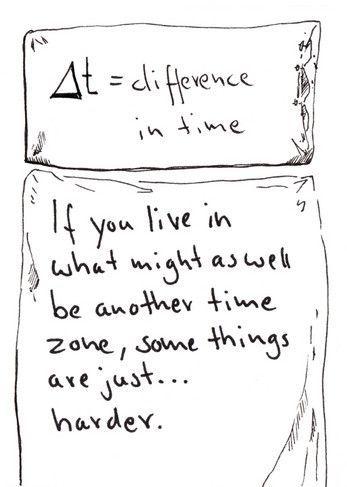 Δt = difference
in time
If you live in
what might as well
be another time
zone, some things
are just...
harder.